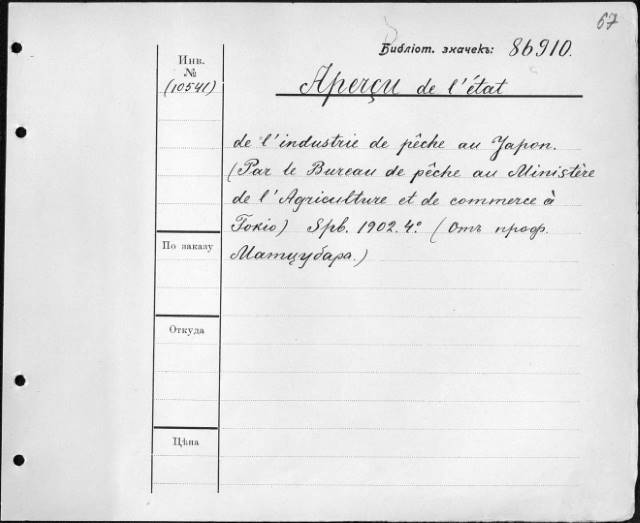 67
Библіот. значекъ: 86910.
Инв.
№
(10541)
Aperçu de l'état
de l'industrie de pêche au Japon.
(Par le Bureau de pêche au Ministère
de l'Agriculture et de commerce à
Tokio) Spb. 1902. 4º. (Отъ проф.
Матцубара.)
По заказу
Откуда
Цѣна